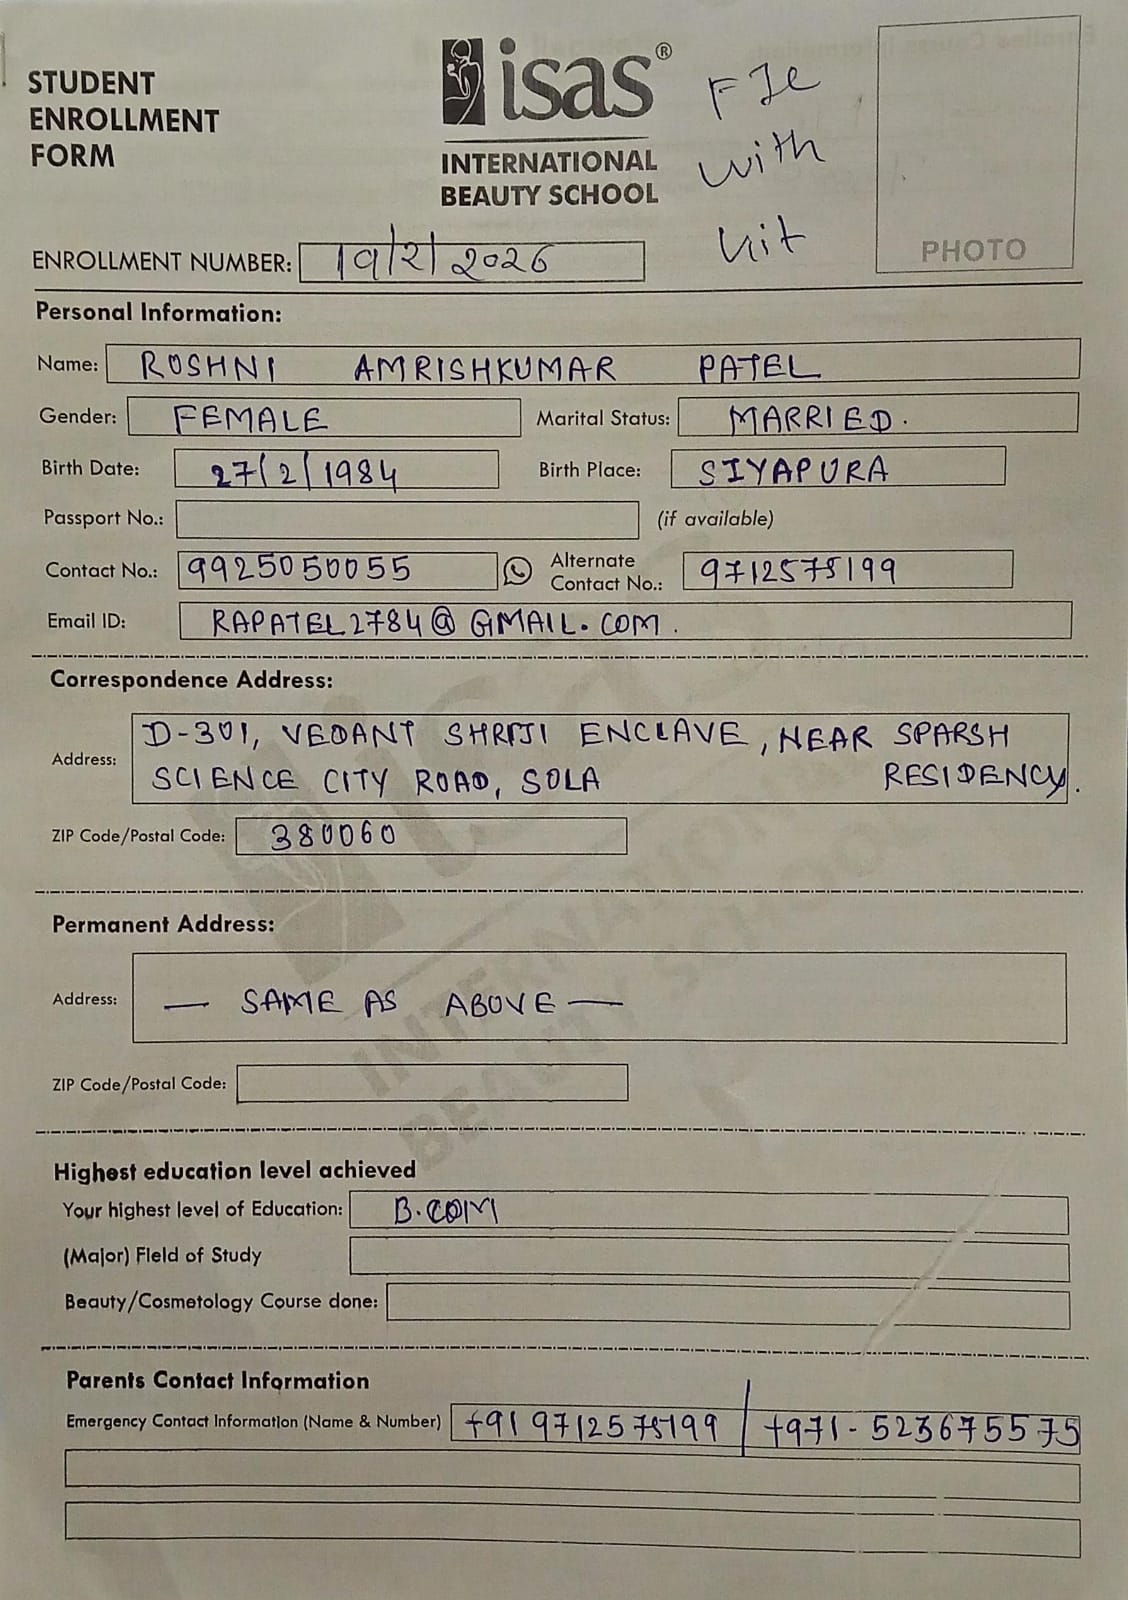 STUDENT
ENROLLMENT
FORM
isas®
INTERNATIONAL
BEAUTY SCHOOL
with
kit
PHOTO
ENROLLMENT NUMBER: 19/2/2026
Personal Information:
Name: ROSHNI AMRISHKUMAR PATEL
Gender: FEMALE Marital Status: MARRIED.
Birth Date: 27/2/1984 Birth Place: SIYAPURA
Passport No.: (if available)
Contact No.: 9925050055 Alternate Contact No.: 9712575199
Email ID: RAPATEL2784@GMAIL.COM.
Correspondence Address:
Address: D-301, VEDANT SHRIJI ENCLAVE, NEAR SPARSH
SCIENCE CITY ROAD, SOLA RESIDENCY.
ZIP Code/Postal Code: 380060
Permanent Address:
Address: — SAME AS ABOVE —
ZIP Code/Postal Code:
Highest education level achieved
Your highest level of Education: B.COM
(Major) Field of Study
Beauty/Cosmetology Course done:
Parents Contact Information
Emergency Contact Information (Name & Number) +91 9712575199 / +971-523675575